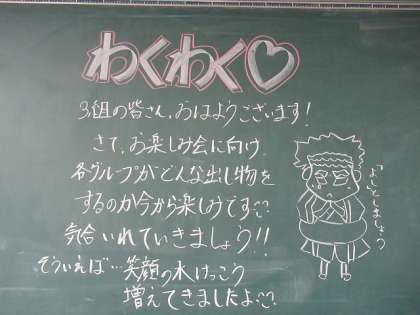 わくわく♡
3組の皆さん、おはようございます!
さて、お楽しみ会に向け、
各グループがどんな出し物を
するのか今から楽しみです♡♡
気合いれていきましょう!!
そういえば…笑顔の木けっこう
増えてきましたよ♡♡
よしとしましょう